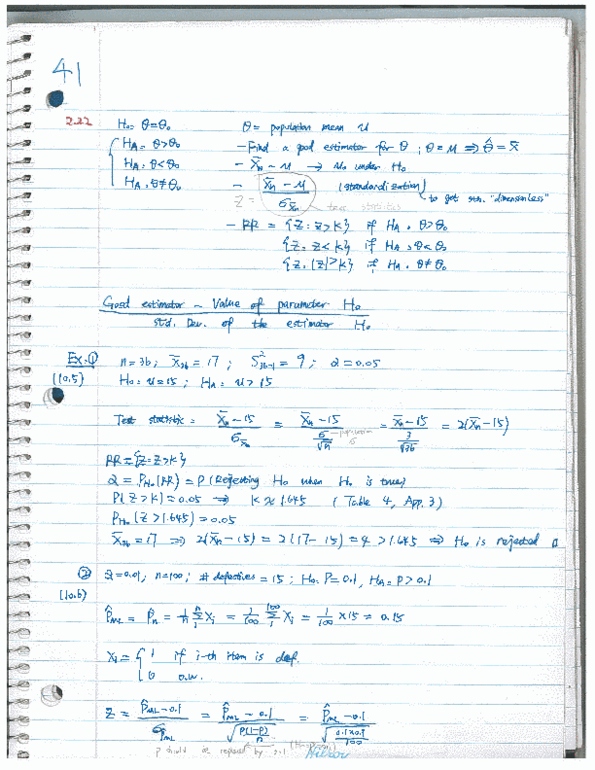 41
2.22 H₀: θ=θ₀ θ = population mean μ
H_A: θ>θ₀ - Find a good estimator for θ ; θ=μ ⇒ θ̂ = X̄
H_A: θ<θ₀ - X̄n - μ → μ₀ under H₀
H_A: θ≠θ₀ - Z = (X̄n - μ) / σ_X̄n (standardization) to get "dimensionless"
test statistic
- RR = {z: z>k} if H_A: θ>θ₀
{z: z<k} if H_A: θ<θ₀
{z: |z|>k} if H_A: θ≠θ₀
Good estimator - Value of parameter H₀
Std. Dev. of the estimator H₀
Ex. ① n=36; X̄₃₆ = 17; S²₃₆₋₁ = 9; α=0.05
(10.5) H₀: μ=15; H_A: μ>15
Test statistic = (X̄n - 15) / σ_X̄n = (X̄n - 15) / (σ/√n) = (X̄n - 15) / (3/√36) = 2(X̄n - 15)
population σ
RR={z: z>k}
α = P_H₀(RR) = P(Rejecting H₀ when H₀ is true)
P(Z>k) = 0.05 ⇒ k ≈ 1.645 (Table 4, App. 3)
P_H₀(Z>1.645) = 0.05
X̄₃₆ = 17 ⇒ 2(X̄n - 15) = 2(17-15) = 4 > 1.645 ⇒ H₀ is rejected
② α=0.01, n=100; # defectives = 15; H₀: P=0.1, H_A: P>0.1
(10.6)
P̂_ML = P̂n = 1/n Σ Xi = 1/100 Σ Xi = 1/100 × 15 = 0.15
Xi = { 1 if i-th item is def.
0 o.w.
Z = (P̂_ML - 0.1) / σ_P̂ML = (P̂_ML - 0.1) / √(P(1-P)/n) = (P̂_ML - 0.1) / √(0.1×0.9/100)
P should be replaced by 0.1